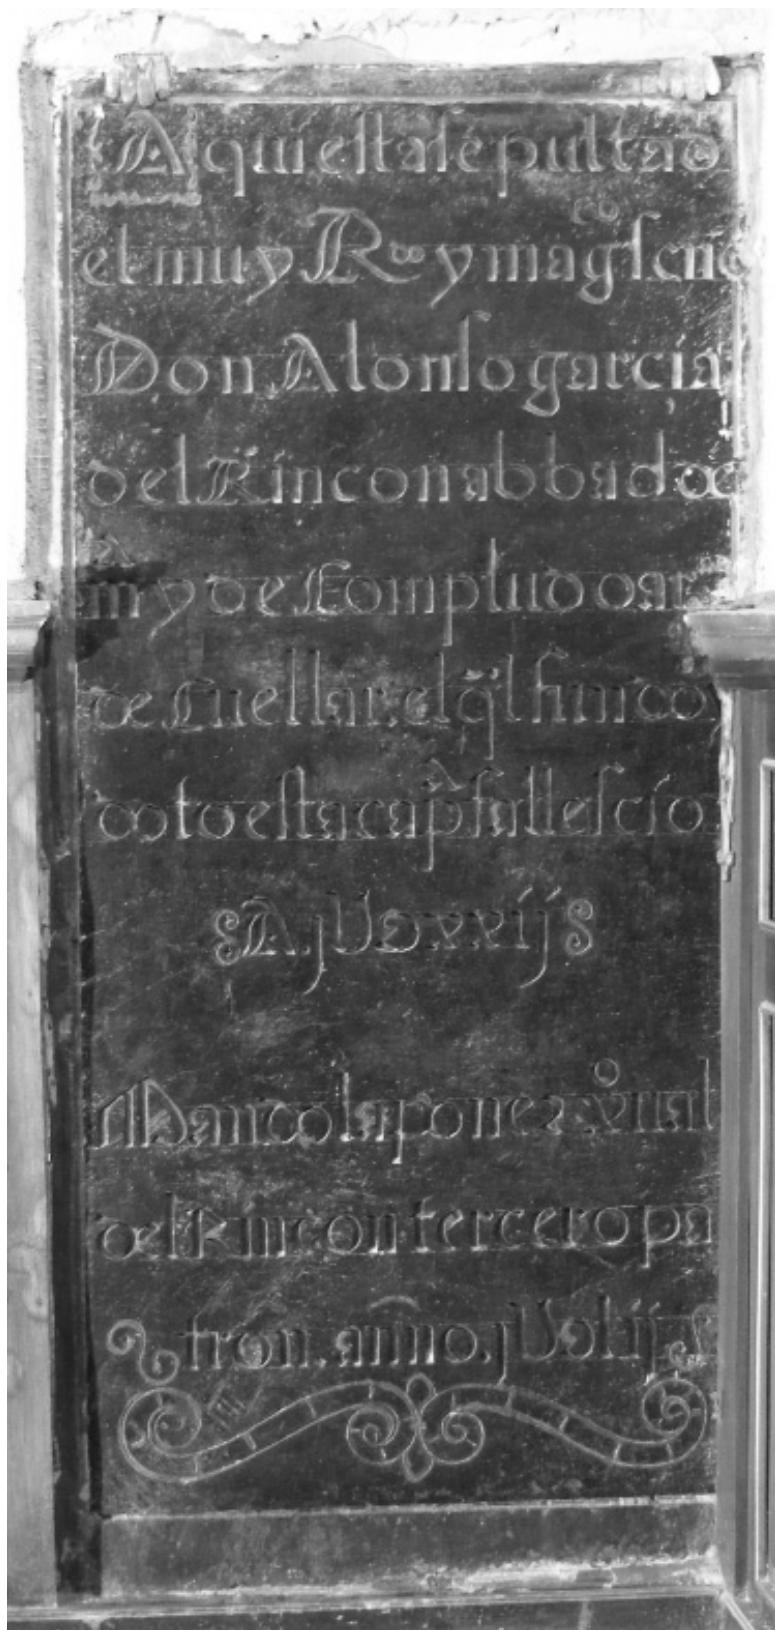 Aqui esta sepultado
el muy Rdo y magco señor
Don Alonso garcia
del Rincon abbad de
my de Compludo arc
de Cuellar. el ql fundo y
doto esta capa fallescio
A. jUo xxiij
Mandola poner xual
del Rincon tercero pa
tron. anno. jUolij